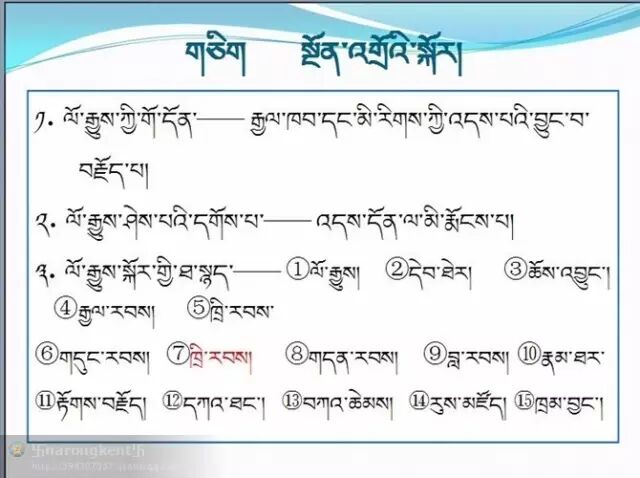 གཅིག སྔོན་འགྲོའི་སྐོར།
༡. ལོ་རྒྱུས་ཀྱི་གོ་དོན་—— རྒྱལ་ཁབ་དང་མི་རིགས་ཀྱི་འདས་པའི་བྱུང་བ་
བརྗོད་པ།
༢. ལོ་རྒྱུས་ཤེས་པའི་དགོས་པ་—— འདས་དོན་ལ་མི་རྨོངས་པ།
༣. ལོ་རྒྱུས་སྐོར་གྱི་ཐ་སྙད་—— ①ལོ་རྒྱུས། ②དེབ་ཐེར། ③ཆོས་འབྱུང་།
④རྒྱལ་རབས། ⑤ཁྲི་རབས་
⑥གདུང་རབས། ⑦ཁྲི་རབས། ⑧གདན་རབས། ⑨བླ་རབས། ⑩རྣམ་ཐར་
⑪རྟོགས་བརྗོད། ⑫དཀའ་ཐང་། ⑬བཀའ་ཆེམས། ⑭རུས་མཛོད། ⑮ཁྲམ་བྱང་།
卐narongkent卐